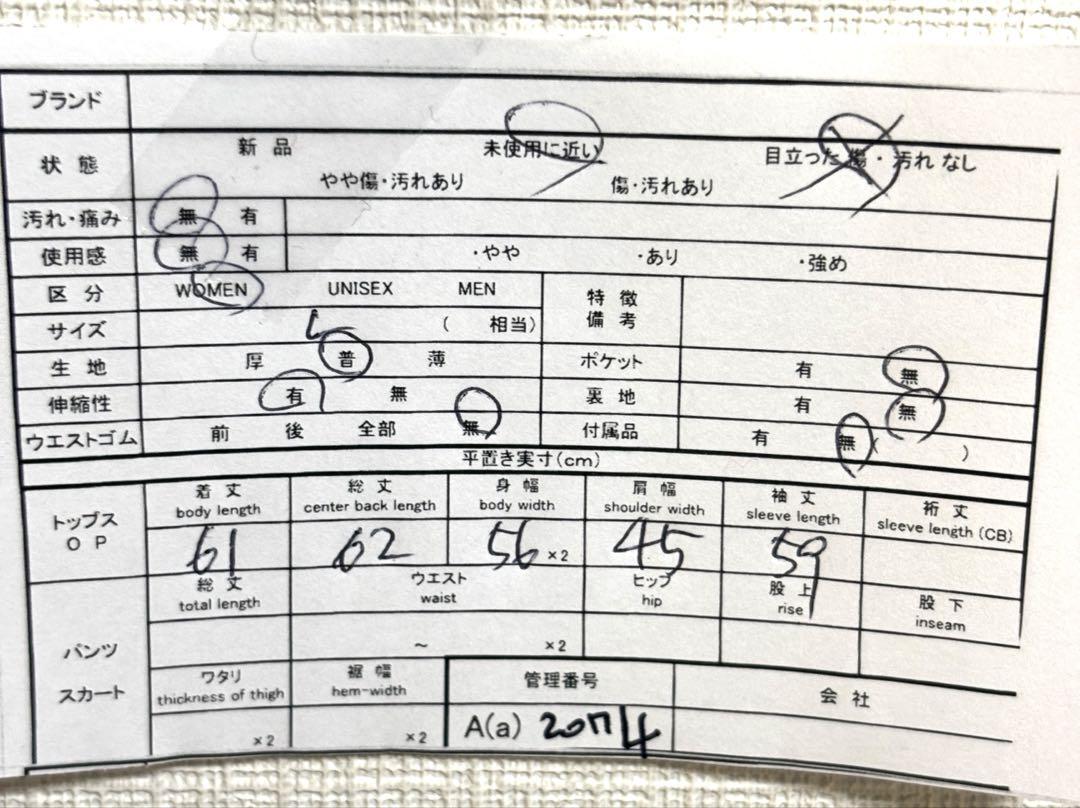 ブランド
状態 新品 未使用に近い 目立った傷・汚れなし
やや傷・汚れあり 傷・汚れあり
汚れ・痛み 無 有
使用感 無 有 ・やや ・あり ・強め
区分 WOMEN UNISEX MEN 特徴
備考
サイズ L ( 相当)
生地 厚 普 薄 ポケット 有 無
伸縮性 有 無 裏地 有 無
ウエストゴム 前 後 全部 無 付属品 有 無( )
平置き実寸(cm)
トップス
OP
着丈 総丈 身幅 肩幅 袖丈 裄丈
body length center back length body width shoulder width sleeve length sleeve length(CB)
61 62 56 ×2 45 59
総丈 ウエスト ヒップ 股上 股下
total length waist hip rise inseam
パンツ ~ ×2
スカート
ワタリ 裾幅 管理番号 会社
thickness of thigh hem-width
×2 ×2 A(a)